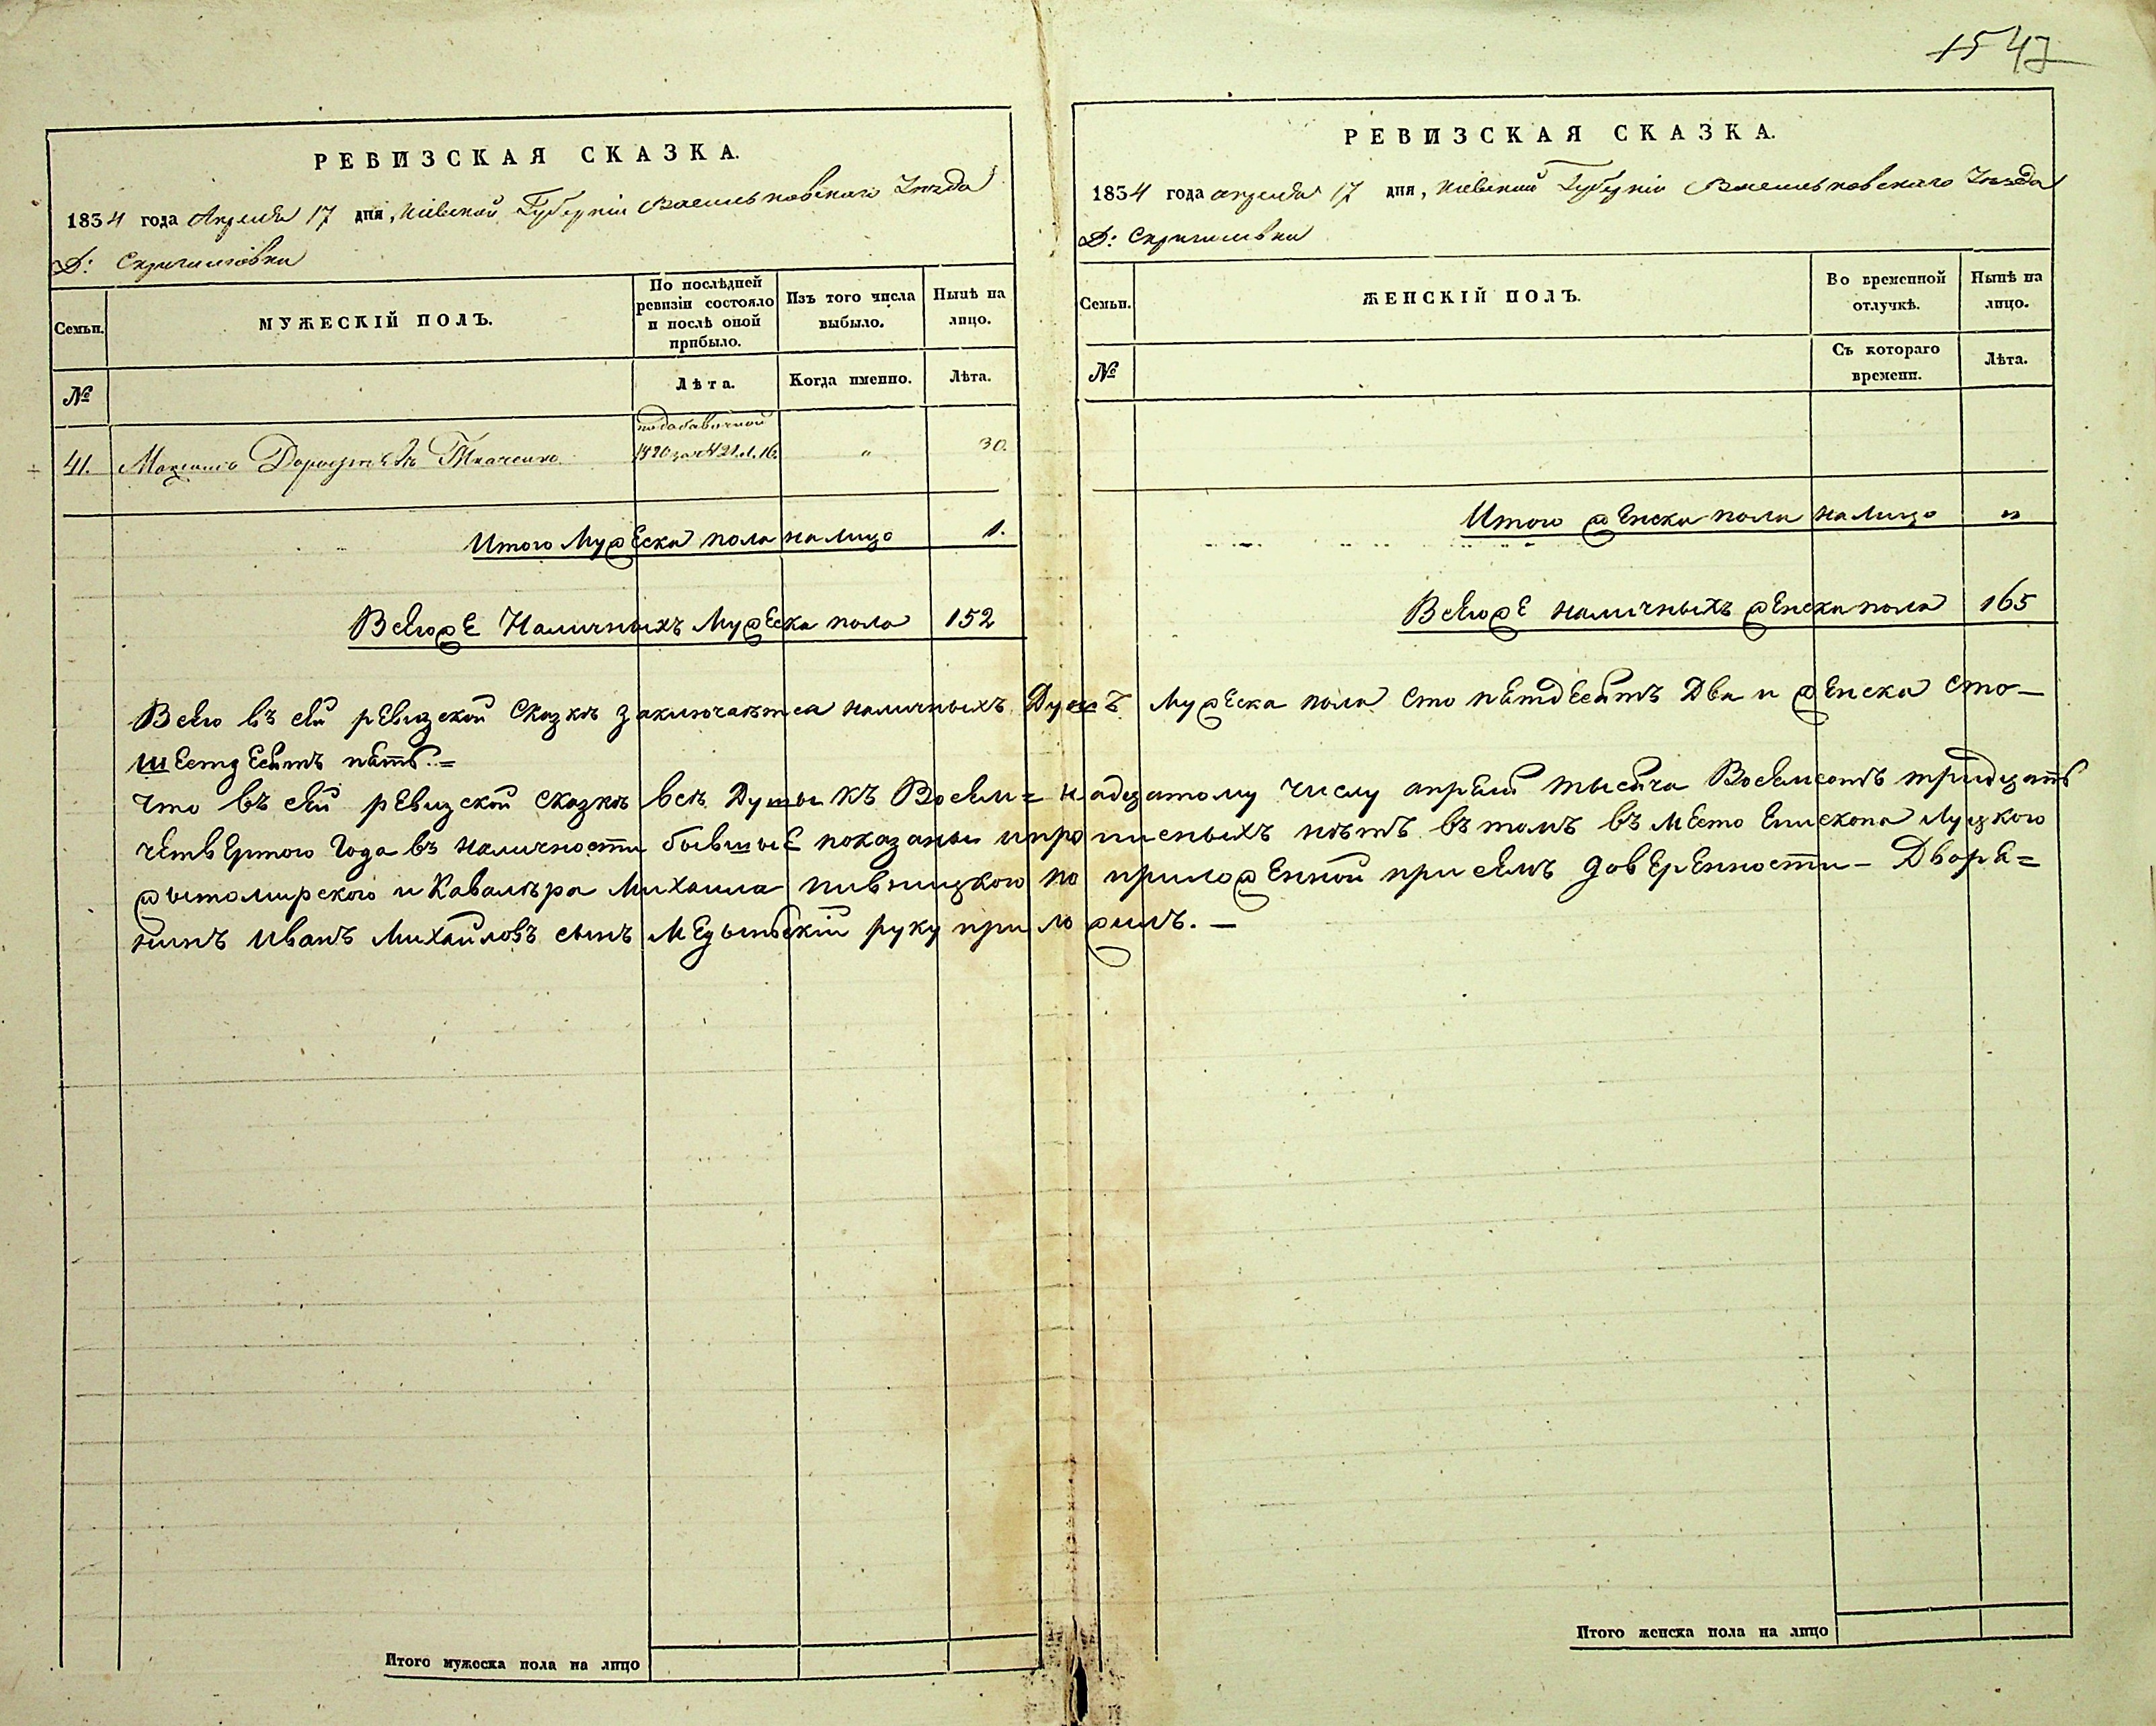 1547
РЕВИЗСКАЯ СКАЗКА.
1834 года Апреля 17 дня, Кіевской Губерніи Васильковскаго Уезда
Д: Скригалевки
Семьи.
МУЖЕСКІЙ ПОЛЪ.
По послѣдней ревизіи состояло и послѣ оной прибыло.
Изъ того числа выбыло.
Нынѣ на лицо.
№
Лѣта.
Когда именно.
Лѣта.
41. Максимъ Дорофеевъ Ткаченко. " 30.
Итого Мужеска пола на лицо 1.
Всегоже Наличныхъ Мужеска пола 152
РЕВИЗСКАЯ СКАЗКА.
1834 года апреля 17 дня, Кіевской Губерніи Васильковскаго Уезда
Д: Скригалевки
Семьи.
ЖЕНСКІЙ ПОЛЪ.
Во временной отлучкѣ.
Нынѣ на лицо.
№
Съ котораго времени.
Лѣта.
Итого женска пола на лицо "
Всегоже наличныхъ женска пола 165
Всего въ сей ревизской Сказкѣ заключаѣтса наличныхъ Душъ Мужеска пола сто пятдесятъ Два и женска сто–
шестдесятъ пять.=
Что въ сей ревизской сказкѣ всѣ Души къ Восем= надцатому числу апреля тысяча Восемсотъ тридцать
четвертого Года въ наличности бывшые показаны ипрописныхъ нѣтъ вътомъ въ место Епископа Луцкого
житомирского и Кавалѣра Михаила пивницкого по приложенной присемъ доверенности– Дворя=
нинъ Иванъ Михайловъ сынъ руку приложилъ.–
Итого мужеска пола на лицо
Итого женска пола на лицо